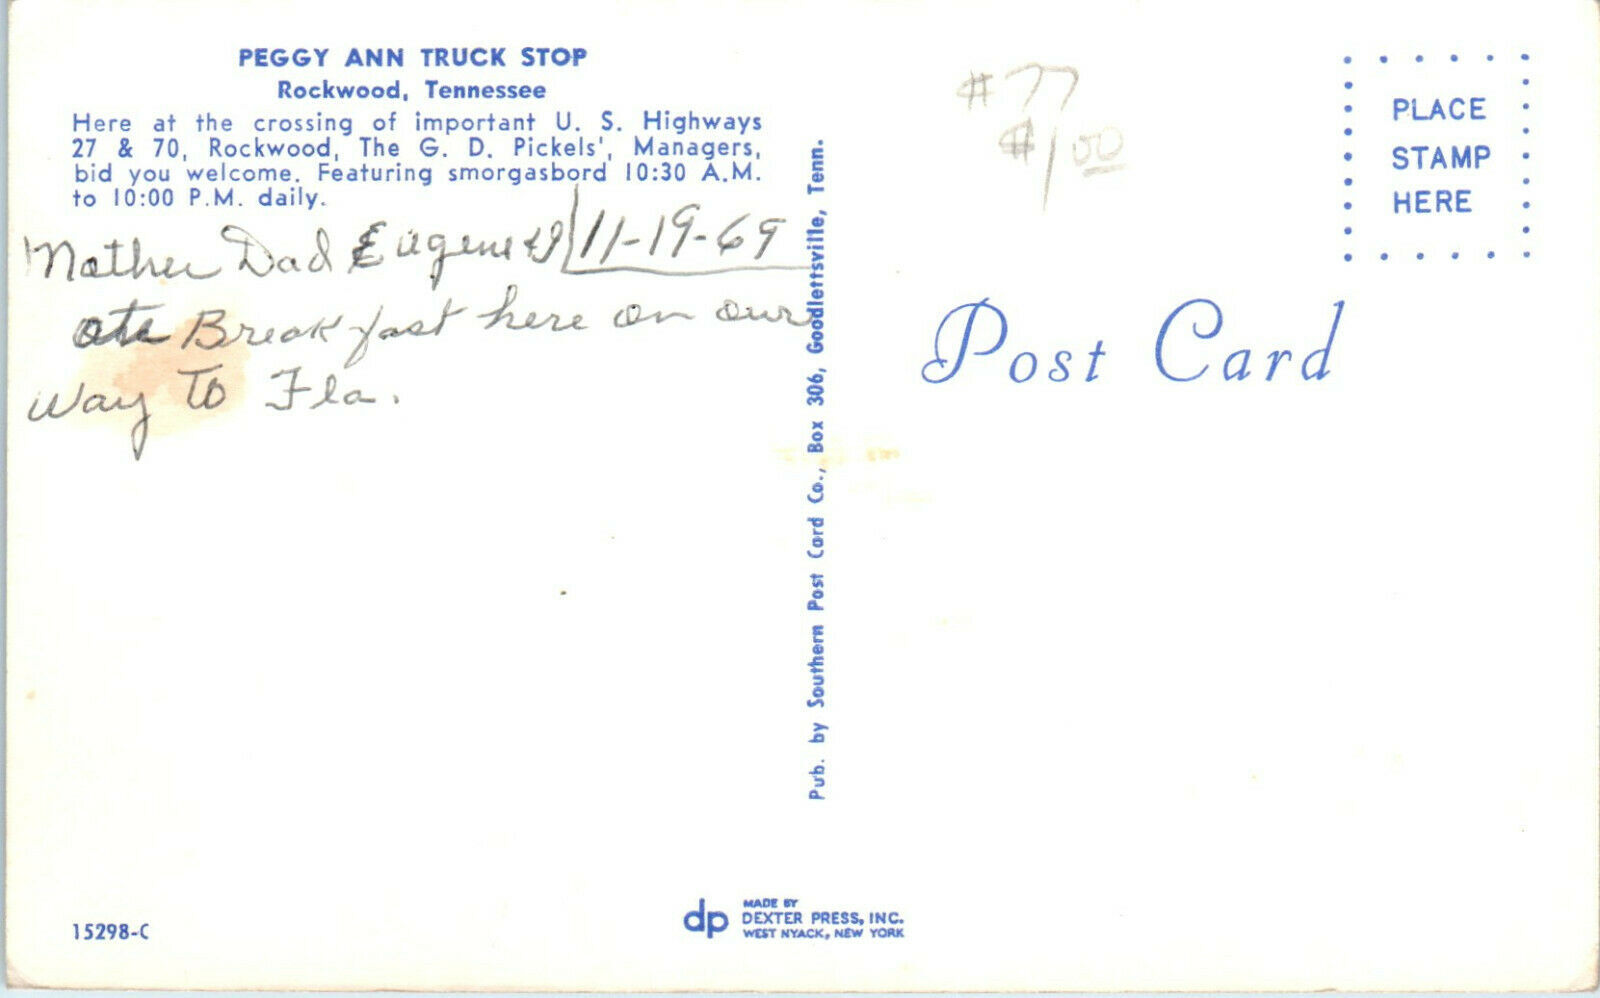 PEGGY ANN TRUCK STOP
Rockwood, Tennessee
Here at the crossing of important U. S. Highways
27 & 70, Rockwood, The G. D. Pickels', Managers,
bid you welcome. Featuring smorgasbord 10:30 A.M.
to 10:00 P.M. daily.
Mother Dad Eugene & I 11-19-69
ate Breakfast here on our
way To Fla.
15298-C
Pub. by Southern Post Card Co., Box 306, Goodlettsville, Tenn.
dp
MADE BY
DEXTER PRESS, INC.
WEST NYACK, NEW YORK
#77
$1.00
PLACE
STAMP
HERE
Post Card